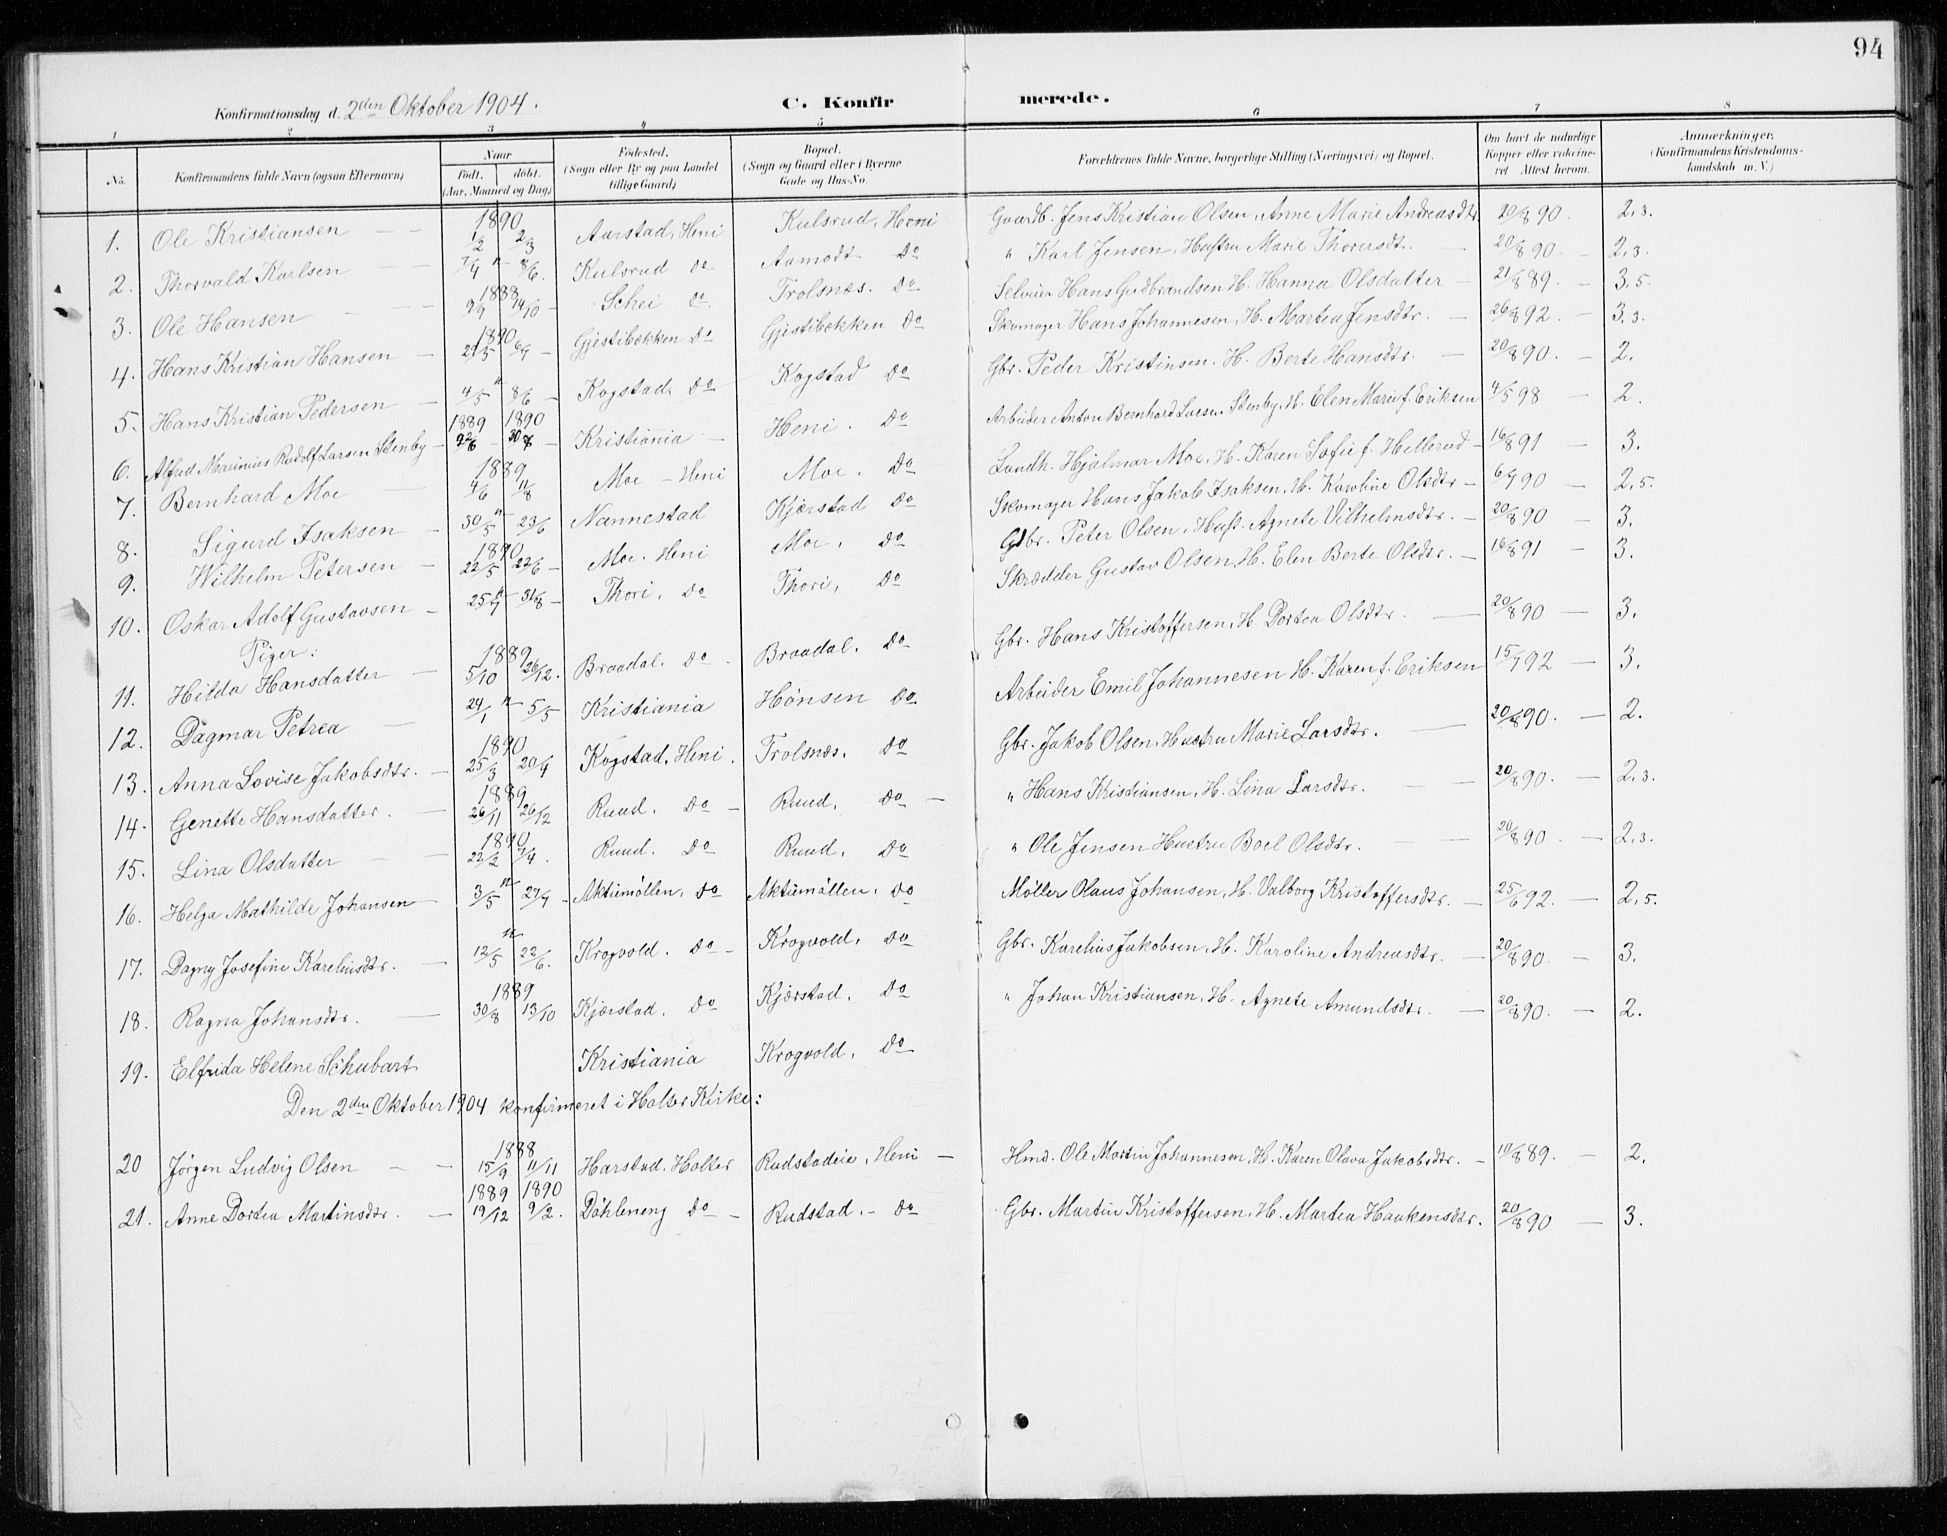 94
Konfirmationsdag d. 2den Oktober 1904. C. Konfirmerede.
1 2 3 4 5 6 7 8
No. Konfirmandens fulde Navn (ogsaa Efternavn) Naar født. døbt. (Aar, Maaned og Dag) Fødested. (Sogn eller By og paa Landet tillige Gaard) Bopæl. (Sogn og Gaard eller i Byerne Gade og Hus-No. Forældrenes fulde Navne, borgerlige Stilling (Næringsvei) og Bopæl. Om havt de naturlige Kopper eller vakcineret Attest herom. Anmærkninger. (Konfirmandens Kristendomskundskab m. V.)
1. Ole Kristiansen — — 1890 1/2 2/3 Aarstad, Heni Kulsrud, Heni Gaardb. Jens Kristian Olsen, Anne Marie Andreasdtr 20/8 90. 2,3.
2. Thorvald Karlsen — " 7/4 8/6. Kulsrud do Aamodt do " Karl Jensen, Hustru Marie Thorersdt. — 20/8 90. — 2,3.
3. Ole Hansen — 1888 9/9 14/10 — Schei do Trolsnæs. do Selveier Hans Gudbrandsen H. Hanna Olsdatter — 21/8 89. — 3,5.
4. Hans Kristian Hansen — 1890 29/5 6/7 — Gjestibækken do Gjestibækken do Skomager Hans Johannesen, H. Martea Jensdtr. — 26/8 92 — 3,3.
5. Hans Kristian Pedersen — " 4/5 8/6 — Kogstad, do Kogstad do Gbr. Peder Kristinsen. H. Berte Hansdtr. — 20/8 90. — 2.
6. Alfred Marinius Rudolf Larsen Stenby — 1889 22/6 1890 30/8 — Kristiania — Heni. do Arbeider Anton Bernhard Larsen Stenby, H. Elen Marie f. Eriksen 4/5 98 — 2.
7. Bernhard Moe — 1889 4/6 11/8 Moe — Heni Moe, do Landh. Hjalmar Moe, H. Karen Sofie f. Hellerud — 16/8 91 — 3.
8. Sigurd Isaksen — " 30/5 23/6 Nannestad Kjærstad do Skomager Hans Jakob Isaksen, H. Karoline Olsdtr — 6/7 90 — 2,5.
9. Wilhelm Petersen — 1890 22/5 22/6 — Moe. Heni Moe, do Gbr. Peter Olsen, Hust. Agnete Vilhelmsdtr. — 20/8 90 — 3.
10. Oskar Adolf Gustavsen — " 25/7 31/8 — Thori, do Thori, do Skrædder Gustav Olsen, H. Elen Berte Olsdtr. — 16/8 91 — 3.
Piger:
11. Hilda Hansdatter — 1889 5/10 26/12. Braadal. do Braadal. do Gbr. Hans Kristoffersen, H. Dortea Olsdtr. — 20/8 90 — 3.
12. Dagmar Petrea — " 24/1 5/5 Kristiania Hønsen do Arbeider Emil Johannesen H. Karen f. Eriksen 15/7 92 — 3.
13. Anna Lovise Jakobsdtr. — 1890 25/3 20/4 Kogstad, Heni. Trolsnæs, do Gbr. Jakob Olsen, Hustru Marie Larsdtr. — 20/8 90. — 2.
14. Genette Hansdatter. — 1889 26/11 26/12 Ruud. do — Ruud, do — " Hans Kristiansen, H. Lina Larsdtr. — 20/8 90. — 2,3.
15. Lina Olsdatter — 1890 22/2 7/4. Ruud. do Ruud, do " Ole Jensen Hustru Boel Olsdtr. — 20/8 90. — 2,3.
16. Helga Mathilde Johansen — " 3/5 27/7 — Aktiemøllen, do Aktiemøllen, do Møller Olaus Johansen, H. Valborg Kristoffersdtr. — 25/6 92. — 2,5.
17. Dagny Josefine Kareliusdtr. — " 12/5 22/6. Krogvold. do — Krogvold, do Gbr. Karelius Jakobsen, H. Karoline Andreasdtr. — 20/8 90. — 3.
18. Ragna Johansdtr. — 1889 30/8 13/10 Kjærstad. do Kjærstad. do " Johan Kristiansen, H. Agnete Amundsdtr. — 20/8 90. — 2.
19. Elfrida Helene Schubart Kristiania Krogvold, do
Den 2den Oktober 1904 konfirmeret i Holter Kirke:
20 Jørgen Ludvig Olsen — — 1888 15/9 11/11 Harstad. Holter Rudstadeie, Heni — Hmd. Ole Martin Johannesen, H. Karen Olava Jakobsdtr. — 10/8 89. — 2.
21. Anne Dortea Martinsdtr. — 1889 19/12 1890 9/2. Døhleneng do — Rudstad. — do Gbr. Martin Kristoffersen, H. Martea Haakensdtr. 20/8 90 — 3.